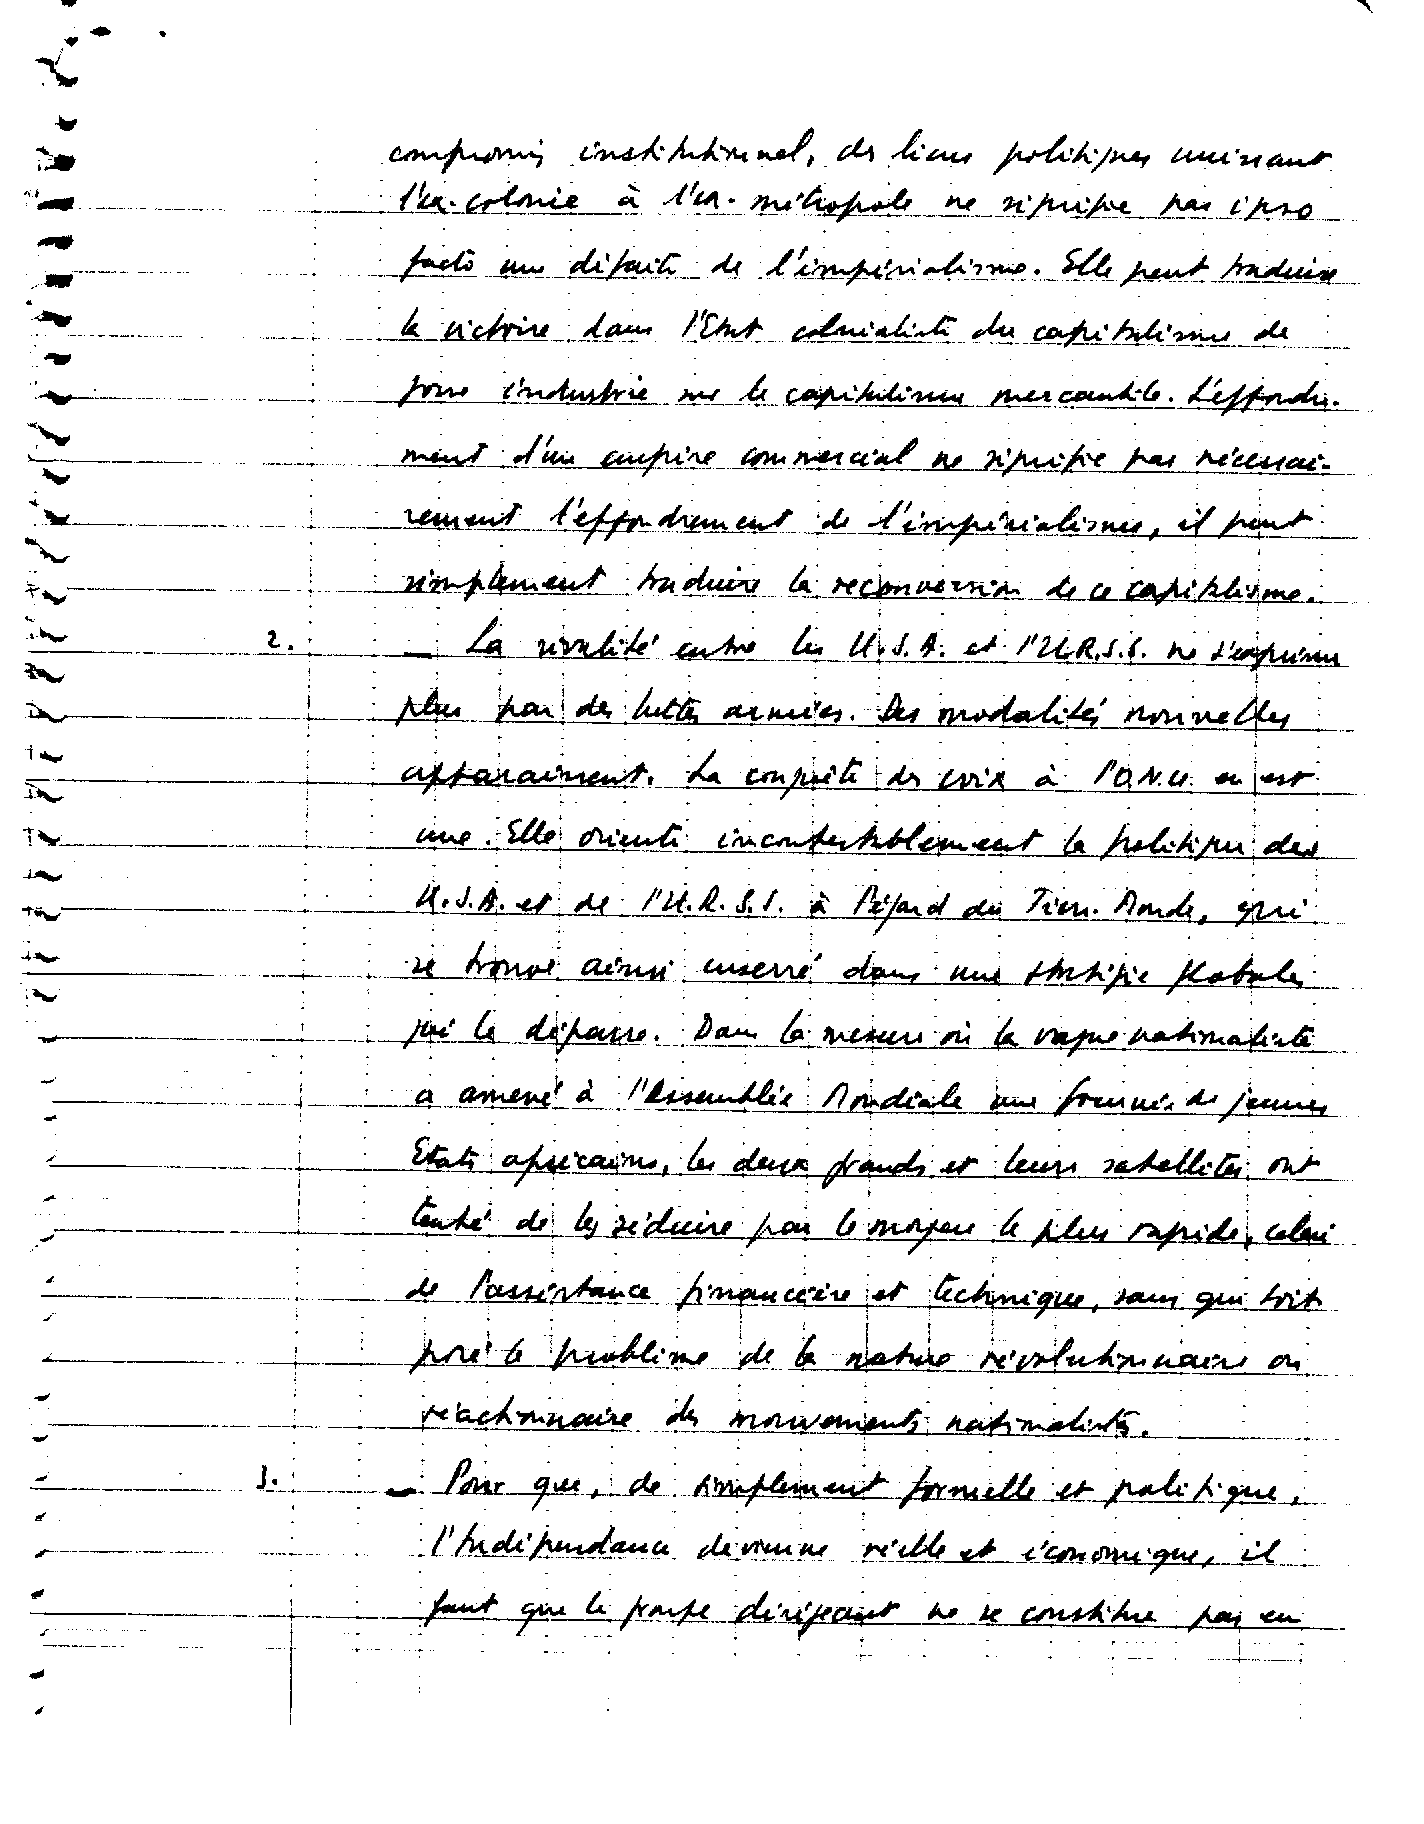 compromis institutionnel, des liens politiques unissant
l'ex-colonie à l'ex-métropole ne signifie pas ipso
facto une défaite de l'impérialisme. Elle peut traduire
la victoire dans l'Etat colonialiste du capitalisme de
grosse industrie sur le capitalisme mercantile. L'effondre-
ment d'un empire commercial ne signifie pas nécessai-
rement l'effondrement de l'impérialisme, il peut
simplement traduire la reconversion de ce capitalisme.
2. — La rivalité entre les U.S.A. et l'U.R.S.S. ne s'exprime
plus par des luttes armées. Des modalités nouvelles
apparaissent. La conquête des voix à l'O.N.U. en est
une. Elle oriente incontestablement la politique des
U.S.A. et de l'U.R.S.S. à l'égard du Tiers-Monde, qui
se trouve ainsi enserré dans une stratégie globale
qui le dépasse. Dans la mesure où la vague nationaliste
a amené à l'Assemblée Mondiale une fournée de jeunes
Etats africains, les deux grands et leurs satellites ont
tenté de les séduire par le moyen le plus rapide, celui
de l'assistance financière et technique, sans que soit
posé le problème de la nature révolutionnaire ou
réactionnaire des mouvements nationalistes.
3. — Pour que, de simplement formelle et politique,
l'Indépendance devienne réelle et économique, il
faut que le groupe dirigeant ne se constitue pas en